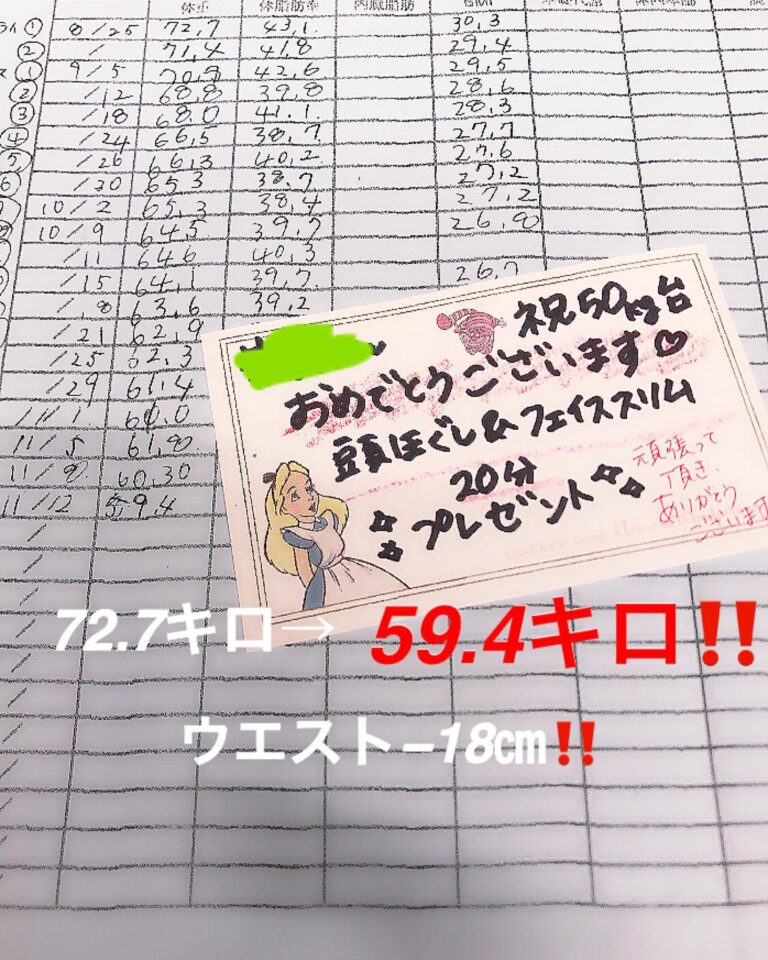 体重 体脂肪率 内臓脂肪
① 8/25 72,7 43,1 30,3
② / 71,4 41,8 29,4
① 9/5 70,9 42,6 29,5
② /12 68,8 39,8 28,6
③ /18 68,0 41,1 28,3
④ /24 66,5 38,7 27,7
⑤ /26 66,3 40,2 27,6
6 /30 65,3 38,7 27,2
10/2 65,3 38,4 27,2
10/9 64,5 39,7 26,8
/11 64,6 40,3
/15 64,1 39,7 26,7
/18 63,6 39,2
/21 62,9
/25 62,3
/29 61,4
11/1
11/5 61,8
11/8 60,30
11/12 59,4
祝50kg台
おめでとうございます♡
頭ほぐし&フェイススリム
20分
プレゼント
頑張って
頂き、
ありがとう
ございます
©DISNEY
72.7キロ→ 59.4キロ‼
ウエスト−18㎝‼